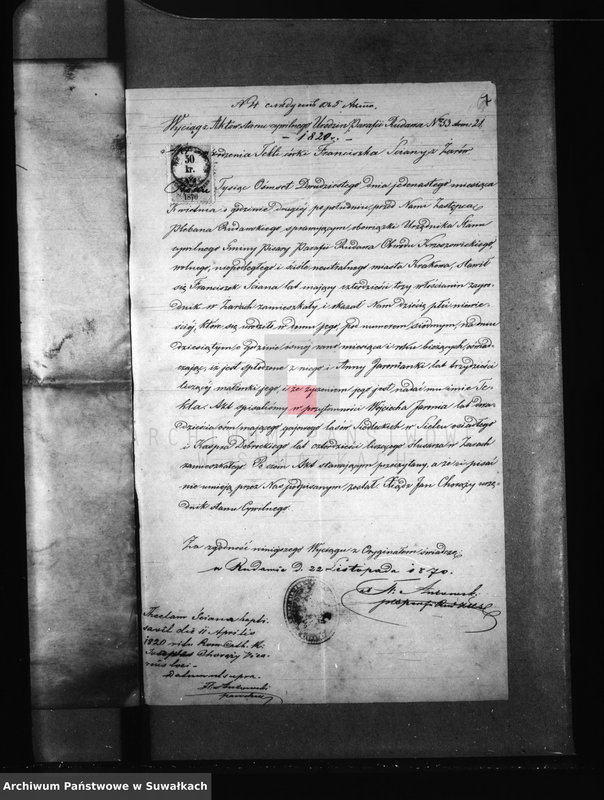 Wyciąg z Aktów stanu cywilnego Urodzin Parafii Rudawa № 33 dom 21.
- 1820 r. -
50
kr.
1870
urodzenia Tekli córki Franciszka Sciany z Żarów
Roku Tysiąc Ośmset Dwudziestego dnia jedenastego miesiąca
Kwietnia o godzinie drugiéj po południu, przed Nami Zastępcą
Plebana Rudawskiego sprawującym obowiązki Urzędnika Stanu
cywilnego Gminy Pisary Parafii Rudawa Okręgu Krzeszowickiego,
wolnego, niepodległego i ściśle neutralnego miasta Krakowa, stawił
się Franciszek Sciana lat mający czterdzieści trzy włościanin zagro-
dnik w Żarach zamieszkały i okazał Nam dziecię płci żeńskiéj
które się urodziło w domu jego pod numerem siódmym, na dniu
dziesiątym o godzinie ósméj rano miesiąca i roku bieżących, oświad-
czając, iż jest spłodzone z niego i Anny lat trzydzieści
liczącéj małżonki jego, i że życzeniem jego jest nadać mu imie Te-
kla. Akt spisaliśmy w przytomności Wojciecha Jarosza lat dwa-
dzieścia ośm mającego gajowego lasów w osiadłego
i Kaspra lat czterdzieści liczącego w Żarach
zamieszkałego. Po czem Akt stawającym przeczytany, a że ci pisać
nie umieją przez Nas podpisanym został. Xiądz Jan Chorąży urzę-
dnik stanu Cywilnego.
Za zgodność niniejszego Wyciągu z Oryginałem świadczę
w Rudawie d. 22 Listopada 1870.
Theclam Sciana bapti-
savit die 11 Aprilis
1820 ritu Rom. Cath.
Chorąży Vica-
rius loci -
Datum ut supra.
Archiwum Państwowe w Suwałkach